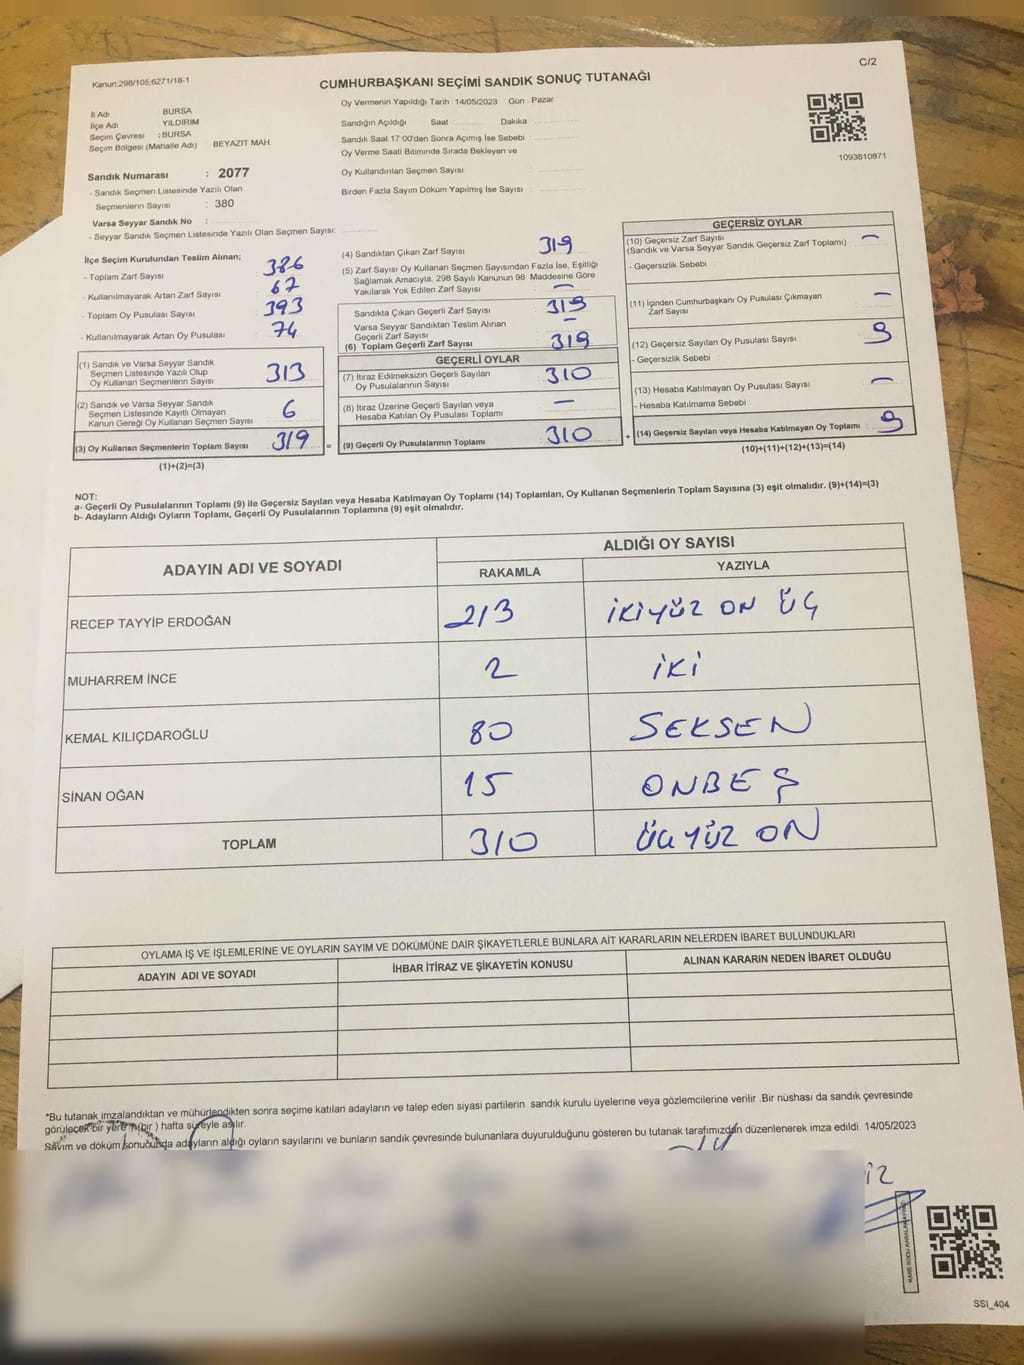 Kanun:298/105;6271/18-1
C/2
CUMHURBAŞKANI SEÇİMİ SANDIK SONUÇ TUTANAĞI
İl Adı BURSA
İlçe Adı YILDIRIM
Seçim Çevresi :BURSA
Seçim Bölgesi (Mahalle Adı) BEYAZIT MAH.
Sandık Numarası : 2077
- Sandık Seçmen Listesinde Yazılı Olan
Seçmenlerin Sayısı : 380
Varsa Seyyar Sandık No :
- Seyyar Sandık Seçmen Listesinde Yazılı Olan Seçmen Sayısı:
Oy Vermenin Yapıldığı Tarih 14/05/2023 Gün : Pazar
Sandığın Açıldığı Saat Dakika
Sandık Saat 17:00'den Sonra Açımış İse Sebebi
Oy Verme Saati Bitiminde Sırada Bekleyen ve
Oy Kullandırılan Seçmen Sayısı
Birden Fazla Sayım Döküm Yapılmış İse Sayısı
1093810871
İlçe Seçim Kurulundan Teslim Alınan;
- Toplam Zarf Sayısı 386
- Kullanılmayarak Artan Zarf Sayısı 67
- Toplam Oy Pusulası Sayısı 393
- Kullanılmayarak Artan Oy Pusulası 74
(1) Sandık ve Varsa Seyyar Sandık
Seçmen Listesinde Yazılı Olup
Oy Kullanan Seçmenlerin Sayısı 313
(2) Sandık ve Varsa Seyyar Sandık
Seçmen Listesinde Kayıtlı Olmayan
Kanun Gereği Oy Kullanan Seçmen Sayısı 6
(3) Oy Kullanan Seçmenlerin Toplam Sayısı 319 =
(1)+(2)=(3)
(4) Sandıktan Çıkan Zarf Sayısı 319
(5) Zarf Sayısı Oy Kullanan Seçmen Sayısından Fazla İse, Eşitliği
Sağlamak Amacıyla, 298 Sayılı Kanunun 98. Maddesine Göre
Yakılarak Yok Edilen Zarf Sayısı –
Sandıkta Çıkan Geçerli Zarf Sayısı 319
Varsa Seyyar Sandıktan Teslim Alınan
Geçerli Zarf Sayısı –
(6) Toplam Geçerli Zarf Sayısı 319
GEÇERLİ OYLAR
(7) İtiraz Edilmeksizin Geçerli Sayılan
Oy Pusulalarının Sayısı 310
(8) İtiraz Üzerine Geçerli Sayılan veya
Hesaba Katılan Oy Pusulası Toplamı –
(9) Geçerli Oy Pusulalarının Toplamı 310 +
GEÇERSİZ OYLAR
(10) Geçersiz Zarf Sayısı –
(Sandık ve Varsa Seyyar Sandık Geçersiz Zarf Toplamı)
- Geçersizlik Sebebi :
(11) İçinden Cumhurbaşkanı Oy Pusulası Çıkmayan
Zarf Sayısı –
(12) Geçersiz Sayılan Oy Pusulası Sayısı 9
- Geçersizlik Sebebi
(13) Hesaba Katılmayan Oy Pusulası Sayısı –
- Hesaba Katılmama Sebebi
(14) Geçersiz Sayılan veya Hesaba Katılmayan Oy Toplamı 9
(10)+(11)+(12)+(13)=(14)
NOT:
a- Geçerli Oy Pusulalarının Toplamı (9) ile Geçersiz Sayılan veya Hesaba Katılmayan Oy Toplamı (14) Toplamları, Oy Kullanan Seçmenlerin Toplam Sayısına (3) eşit olmalıdır. (9)+(14)=(3)
b- Adayların Aldığı Oyların Toplamı, Geçerli Oy Pusulalarının Toplamına (9) eşit olmalıdır.
ADAYIN ADI VE SOYADI
ALDIĞI OY SAYISI
RAKAMLA YAZIYLA
RECEP TAYYİP ERDOĞAN 213 İKİYÜZ ON ÜÇ
MUHARREM İNCE 2 İKİ
KEMAL KILIÇDAROĞLU 80 SEKSEN
SİNAN OĞAN 15 ONBEŞ
TOPLAM 310 ÜÇYÜZ ON
OYLAMA İŞ VE İŞLEMLERİNE VE OYLARIN SAYIM VE DÖKÜMÜNE DAİR ŞİKAYETLERLE BUNLARA AİT KARARLARIN NELERDEN İBARET BULUNDUKLARI
ADAYIN ADI VE SOYADI İHBAR İTİRAZ VE ŞİKAYETİN KONUSU ALINAN KARARIN NEDEN İBARET OLDUĞU
*Bu tutanak imzalandıktan ve mühürlendikten sonra seçime katılan adayların ve talep eden siyasi partilerin sandık kurulu üyelerine veya gözlemcilerine verilir .Bir nüshası da sandık çevresinde
görülecek bir yere 1(bir ) hafta süreyle asılır.
Sayım ve döküm sonucunda adayların aldığı oyların sayılarını ve bunların sandık çevresinde bulunanlara duyurulduğunu gösteren bu tutanak tarafımızdan düzenlenerek imza edildi. 14/05/2023
SSI_404